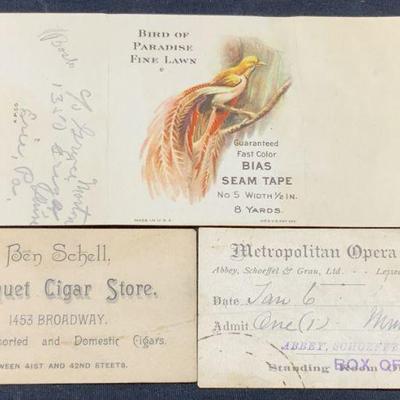 BIRD OF
PARADISE
FINE LAWN
Guaranteed
Fast Color
BIAS
SEAM TAPE
No 5 WIDTH 1/2 IN.
8 YARDS.
MADE IN U.S.A.
c/o
Erie, Pa.
Ben Schell,
quet Cigar Store.
1453 BROADWAY.
orted and Domestic Cigars.
WEEN 41ST AND 42ND STEETS.
Metropolitan Opera
Abbey, Schoeffel & Grau, Ltd.
Date Jan 6
Admit One (1)
ABBEY, SCHOEFFE
BOX OF
Standing Room O